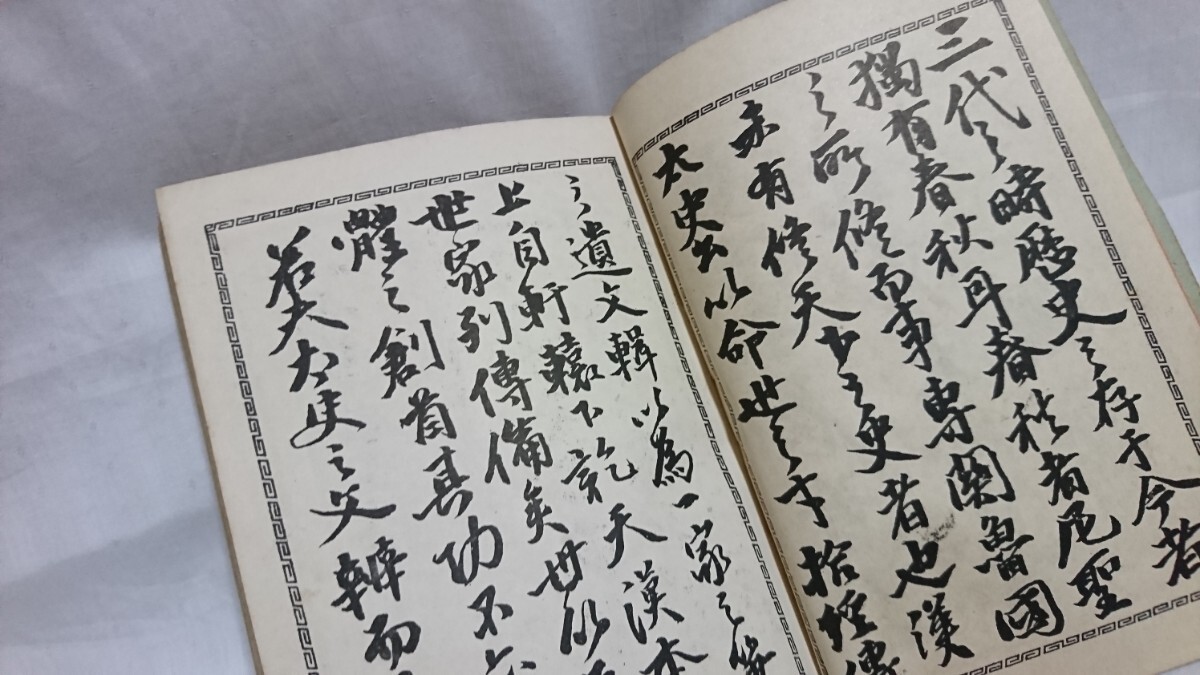 三代之時歷史之存于今者
獨有春秋耳春秋者尼聖
之所修而事專關魯國
未有修天下之史者也漢
太史公以命世之才拾經傳
之遺文輯以為一家之
上自軒轅下訖天漢本
世家列傳備矣世以
體之創者其功不
若夫太史之文辭而